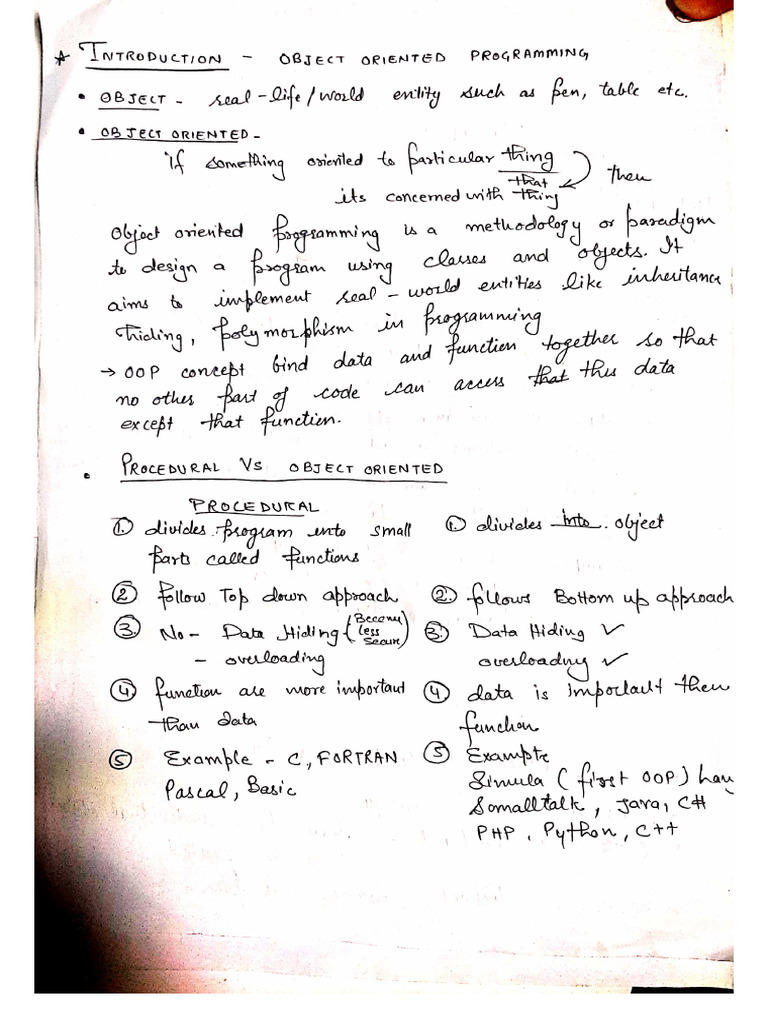 * INTRODUCTION - OBJECT ORIENTED PROGRAMMING
• OBJECT - real-life/world entity such as pen, table etc.
• OBJECT ORIENTED -
If something oriented to particular thing
then
its concerned with that thing
Object oriented programming is a methodology or paradigm
to design a program using classes and objects. It
aims to implement real-world entities like inheritance
hiding, polymorphism in programming
→ OOP concept bind data and function together so that
no other part of code can access that this data
except that function.
• PROCEDURAL VS OBJECT ORIENTED
PROCEDURAL
① divides program into small
parts called functions
① divides into object
② follow Top down approach
② follows Bottom up approach
③ No - Data Hiding (Become less secure)
- overloading
③ Data Hiding ✓
overloading ✓
④ function are more important
than data
④ data is important then
function
⑤ Example - C, FORTRAN
Pascal, Basic
⑤ Example
Simula (first OOP) lang
Somalltalk, Java, C#
PHP, Python, C++